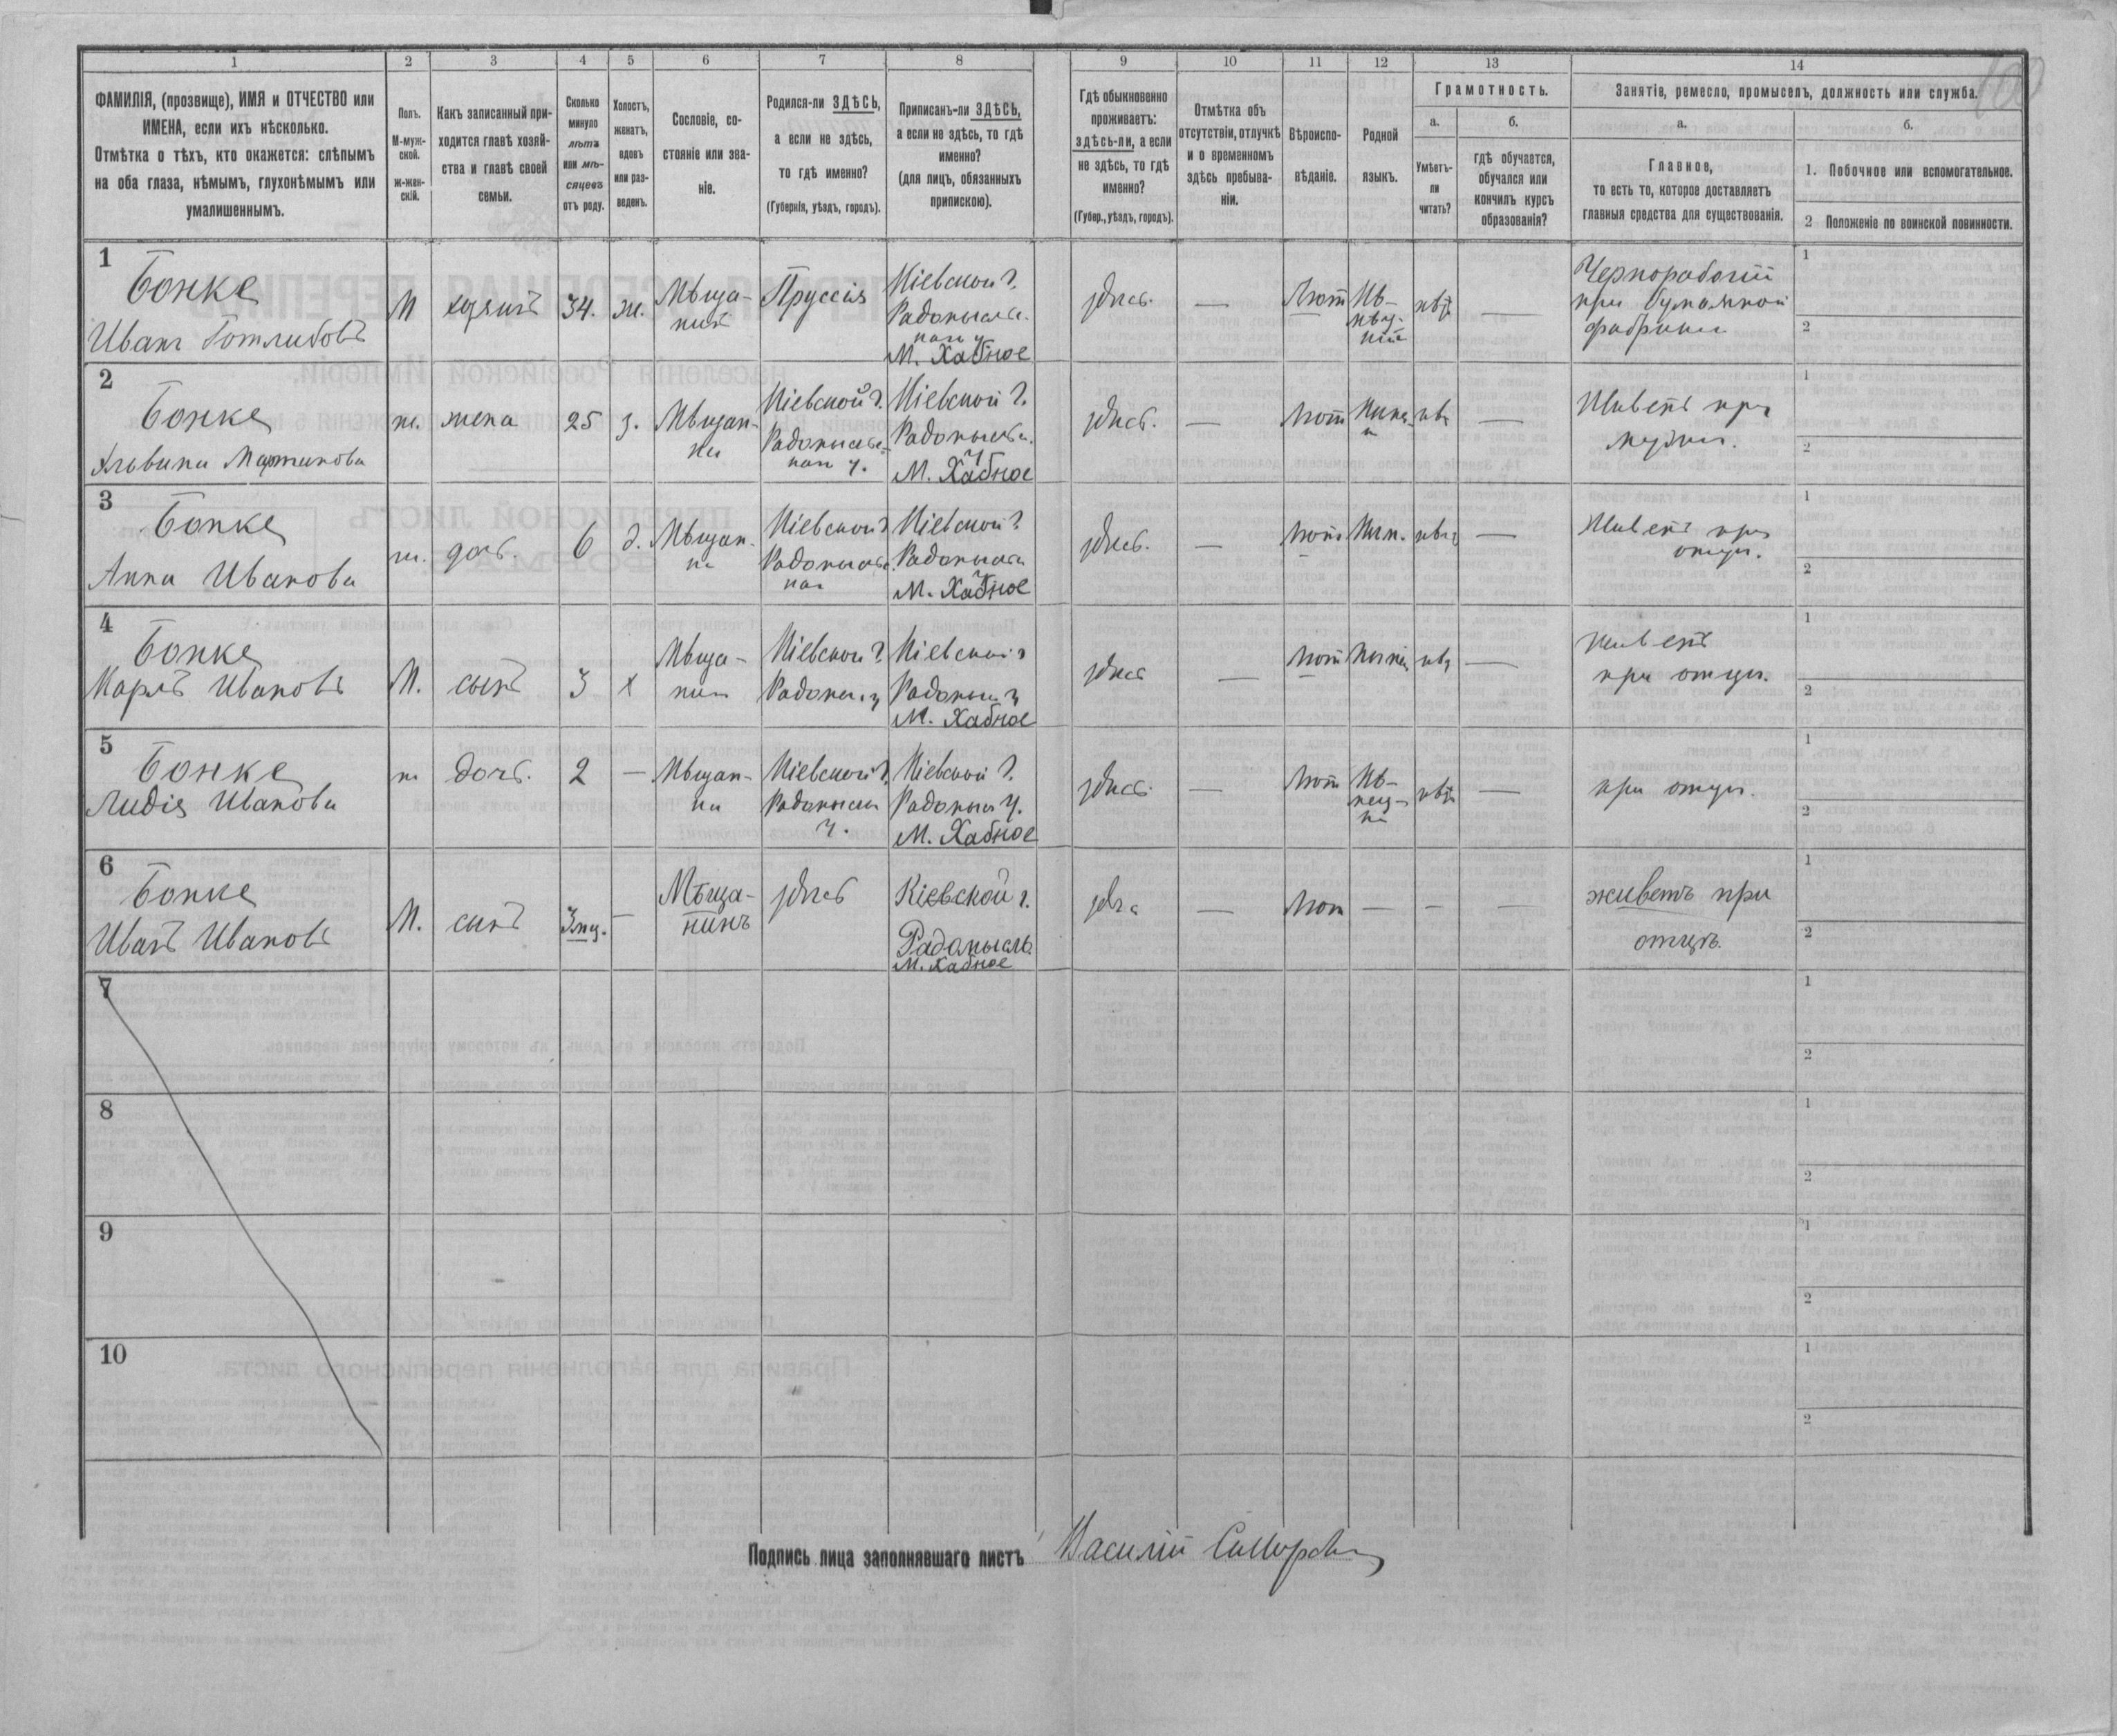 100
1 2 3 4 5 6 7 8 9 10 11 12 13 14
ФАМИЛІЯ, (прозвище), ИМЯ и ОТЧЕСТВО или
ИМЕНА, если ихъ нѣсколько.
Отмѣтка о тѣхъ, кто окажется: слѣпымъ
на оба глаза, нѣмымъ, глухонѣмымъ или
умалишеннымъ.
Полъ.
М-муж-
ской.
ж-жен-
скій.
Какъ записанный при-
ходится главѣ хозяй-
ства и главѣ своей
семьи.
Сколько
минуло
лѣтъ
или мѣ-
сяцевъ
отъ роду.
Холостъ,
женатъ,
вдовъ
или раз-
веденъ.
Сословіе, со-
стояніе или зва-
ніе.
Родился-ли ЗДѢСЬ,
а если не здѣсь,
то гдѣ именно?
(Губернія, уѣздъ, городъ).
Приписанъ-ли ЗДѢСЬ,
а если не здѣсь, то гдѣ
именно?
(для лицъ, обязанныхъ
припискою).
Гдѣ обыкновенно
проживаетъ:
здѣсь-ли, а если
не здѣсь, то гдѣ
именно?
(Губер., уѣздъ, городъ).
Отмѣтка объ
отсутствіи, отлучкѣ
и о временномъ
здѣсь пребыва-
ніи.
Вѣроиспо-
вѣданіе.
Родной
языкъ.
Грамотность.
а.
Умѣетъ-
ли
читать?
б.
гдѣ обучается,
обучался или
кончилъ курсъ
образованія?
Занятіе, ремесло, промыселъ, должность или служба.
а.
Главное,
то есть то, которое доставляетъ
главныя средства для существованія.
б.
1. Побочное или вспомогательное.
2 Положеніе по воинской повинности.
1
Бонке
Иванъ Готлибовъ
М
хозяинъ
34.
ж.
Мѣща-
нинъ
Пруссія
Кіевской г.
Радомысль-
М. Хабное
здѣсь.
—
Лют
Нѣ-
мец-
кій
нѣтъ
—
Чернорабочій
при бумажной
фабрики
1
2
2
Бонке
Альвина Мартинова
ж.
жена
25
з.
Мѣщан-
ка
Кіевской г.
Радомысльс-
каго у.
Кіевской г.
Радомысль.
у
М. Хабное
здѣсь.
—
Лют
нѣтъ
—
Живетъ при
мужи.
1
2
3
Бонке
Анна Иванова
ж.
дочь.
6
д.
Мѣщан-
ка
Кіевской г.
Радомысльс
каго
Кіевской г.
Радомысль
у
М. Хабное
здѣсь.
—
Лют
Нѣм.
нѣтъ
—
Живетъ при
отцы.
1
2
4
Бонке
Карлъ Ивановъ
М.
сынъ
3
х
Мѣща-
нин
Кіевской г.
Радомы. у
Кіевской г
Радомыс. у
М. Хабное
здѣсь
—
Лют
нѣт
—
Живетъ
при отцы.
1
2
5
Бонке
Лидія Иванова
ж
дочь.
2
—
Мѣщан-
ка
Кіевской г.
Радомысль
у.
Кіевской г.
Радомыс у.
М. Хабное
здѣсь.
—
Лют
Нѣ-
мец-
кі
нѣтъ
—
при отцы.
1
2
6
Бонке
Иванъ Ивановъ
М.
сынъ
3 мц.
—
Мѣща-
нинъ
здѣсь
Кіевской г.
Радомысль.
М. Хабное
здѣс
—
Лют
—
—
—
живетъ при
отцѣ.
1
2
7
1
2
8
1
2
9
1
2
10
1
2
Подпись лица заполнявшаго листъ Василій